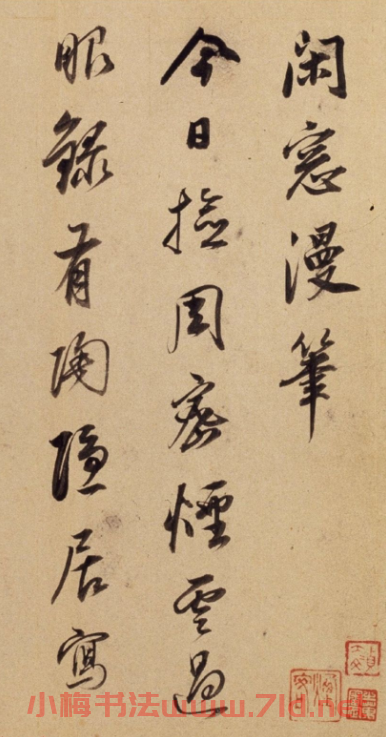 閑窓漫筆
今日撿周密煙雲過
眼錄有陶隱居寫
小梅书法www.7ld.net